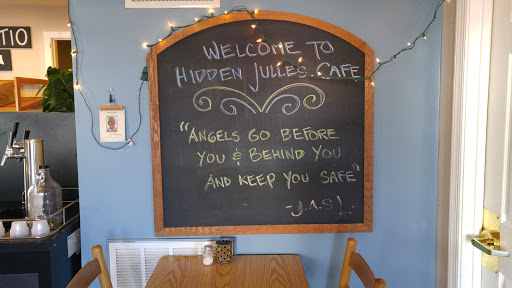 TIO
WELCOME TO
HIDDEN JULLES CAFE
"ANGELS GO BEFORE
YOU & BEHIND YOU
AND KEEP YOU SAFE"
-J.A.S.L.